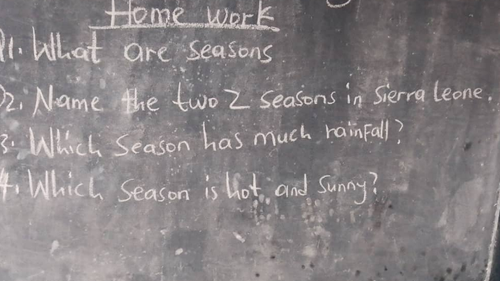 Home work
Q1. What are seasons
Q2. Name the two 2 seasons in Sierra Leone.
3. Which season has much rainfall?
4. Which season is hot and sunny?